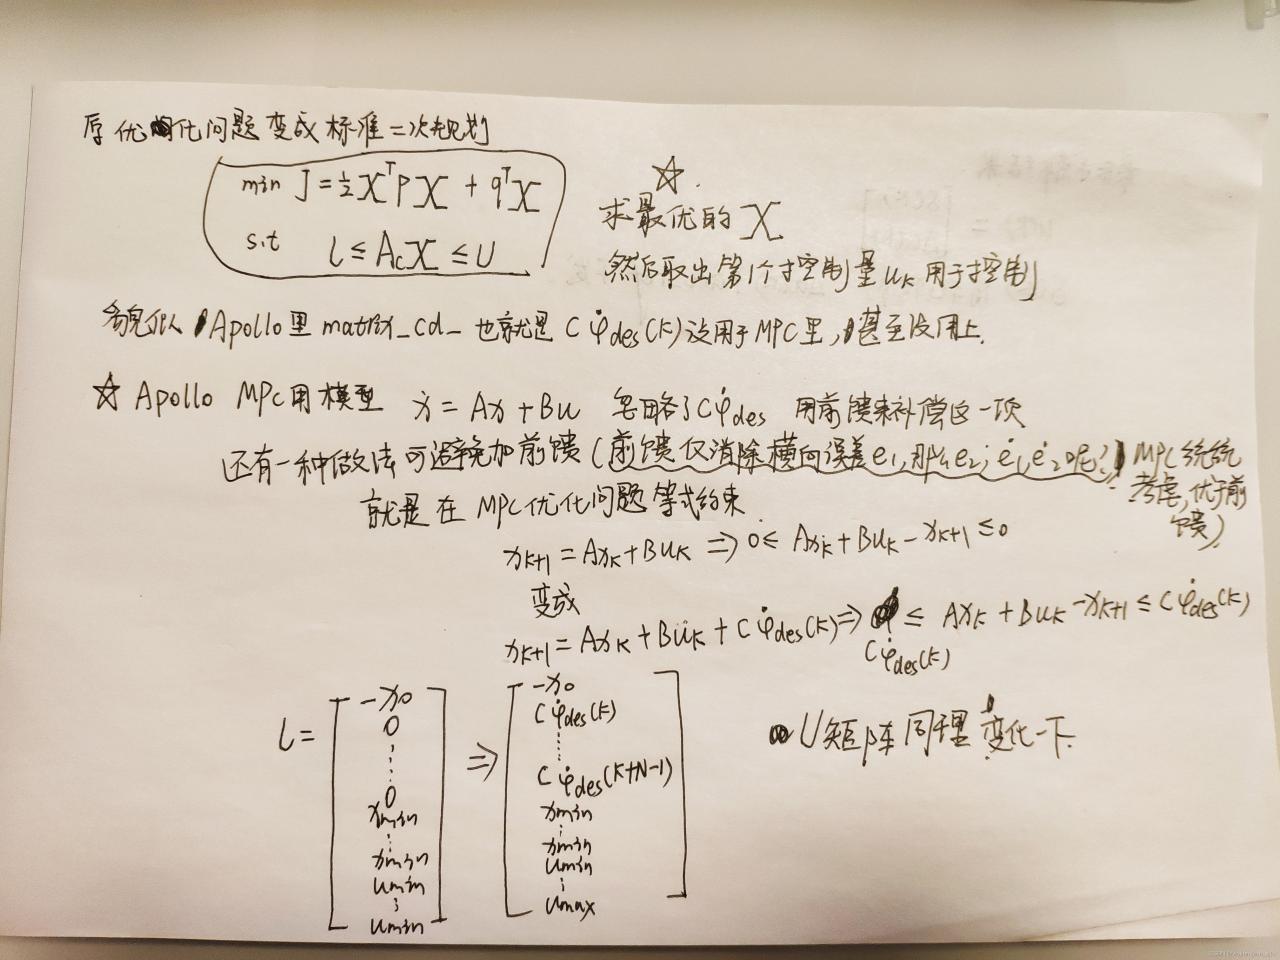 原优化问题变成标准二次规划
min J = ½XᵀPX + qᵀX
s.t l ≤ AcX ≤ U
☆
求最优的X
然后取出第1个控制量uₖ用于控制
貌似Apollo里matrix_cd_也就是Cφ̇des(k)没用于MPC里,甚至没用上.
☆ Apollo MPC用模型 ẋ = Ax + Bu 忽略了Cφ̇des 用前馈来补偿这一项
还有一种做法可避免加前馈(前馈仅消除横向误差e₁,那么e₂,ė₁,ė₂呢? MPC统统
考虑,优于前
馈)
就是在MPC优化问题等式约束
xₖ₊₁ = Axₖ + Buₖ ⇒ 0 ≤ Axₖ + Buₖ - xₖ₊₁ ≤ 0
变成
xₖ₊₁ = Axₖ + Buₖ + Cφ̇des(k) ⇒ ≤ Axₖ + Buₖ - xₖ₊₁ ≤ Cφ̇des(k)
Cφ̇des(k)
l =
-x₀
0
⋮
0
xmin
⋮
xmin
umin
⋮
umin
⇒
-x₀
Cφ̇des(k)
⋮
Cφ̇des(k+N-1)
xmin
⋮
xmin
umin
⋮
umax
U矩阵同理变化一下.